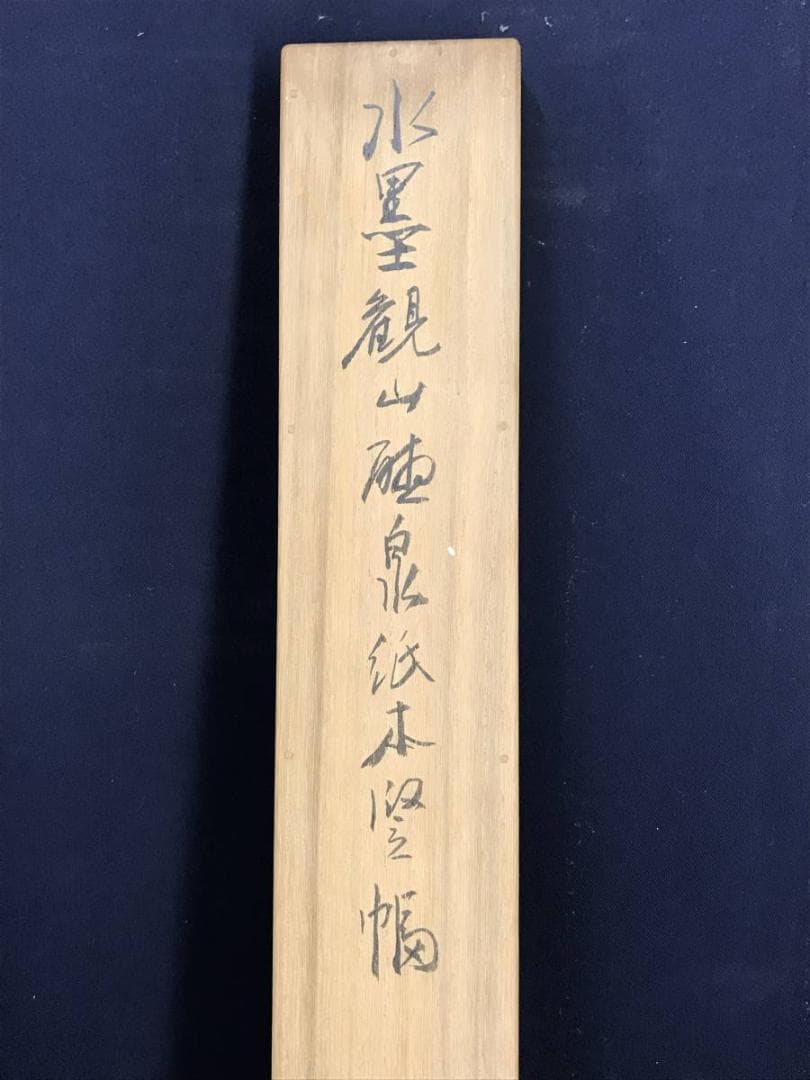 水墨観山聴泉紙本竪幅